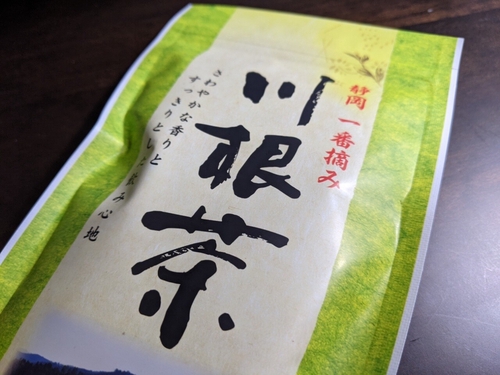 静岡 一番摘み
川根茶
さわやかな香り
すっきりとしたのみ心地